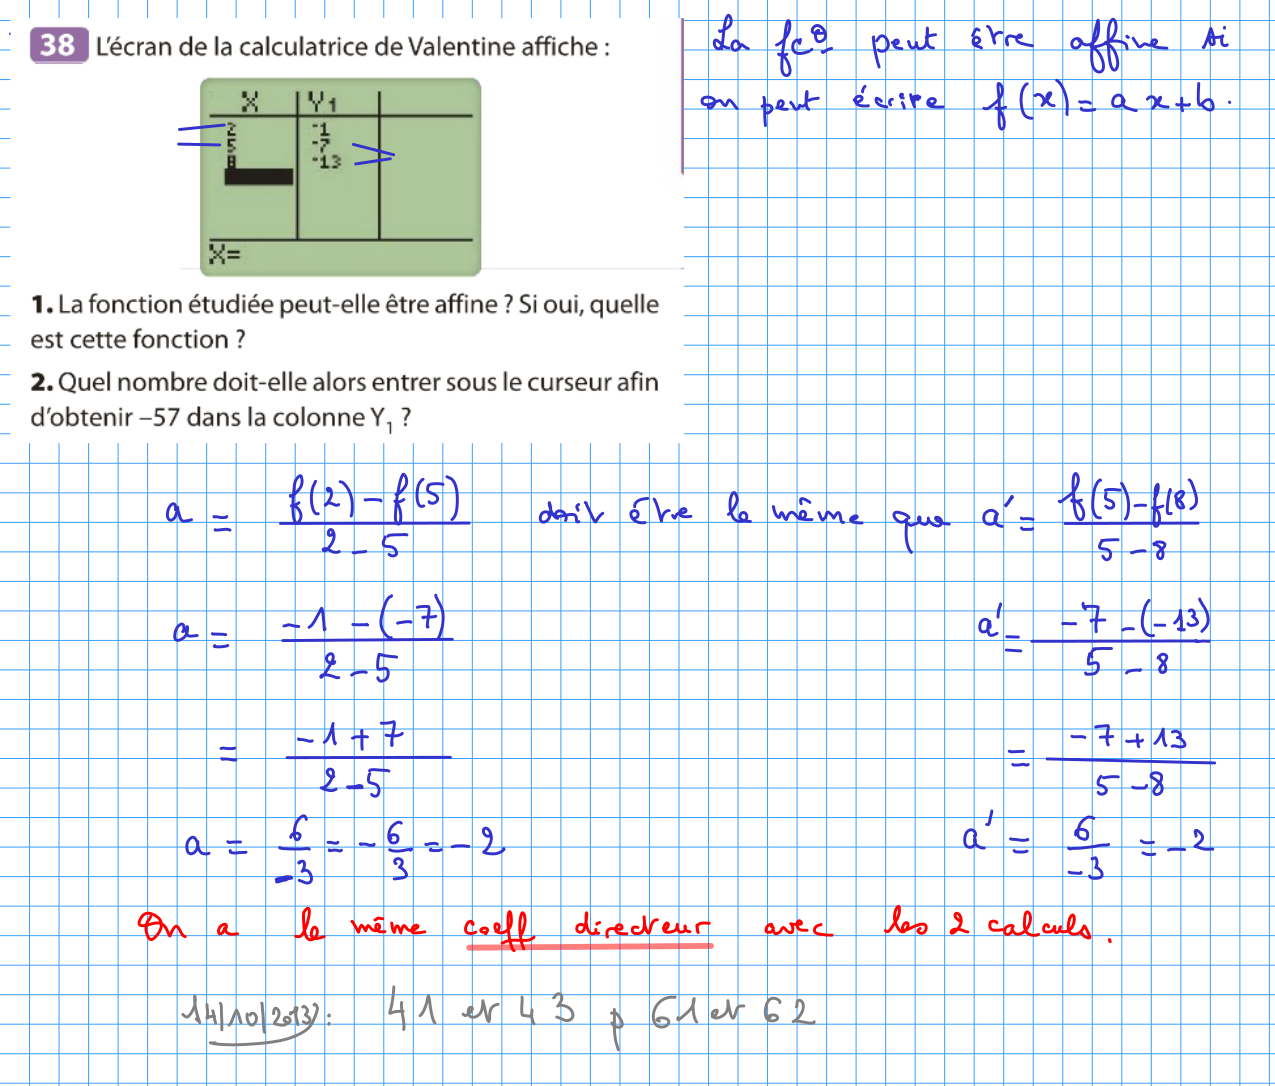 38 L'écran de la calculatrice de Valentine affiche :
X Y₁
2 -1
5 -7
8 -13
X=
1. La fonction étudiée peut-elle être affine ? Si oui, quelle
est cette fonction ?
2. Quel nombre doit-elle alors entrer sous le curseur afin
d'obtenir –57 dans la colonne Y₁ ?
La fc° peut être affine si
on peut écrire f(x) = ax+b.
a = (f(2) - f(5)) / (2 - 5) doit être le même que a' = (f(5) - f(8)) / (5 - 8)
a = (-1 - (-7)) / (2 - 5) a' = (-7 - (-13)) / (5 - 8)
= (-1 + 7) / (2 - 5) = (-7 + 13) / (5 - 8)
a = 6/-3 = - 6/3 = -2 a' = 6/-3 = -2
On a le même coeff directeur avec les 2 calculs.
41 et 43 p 61 et 62